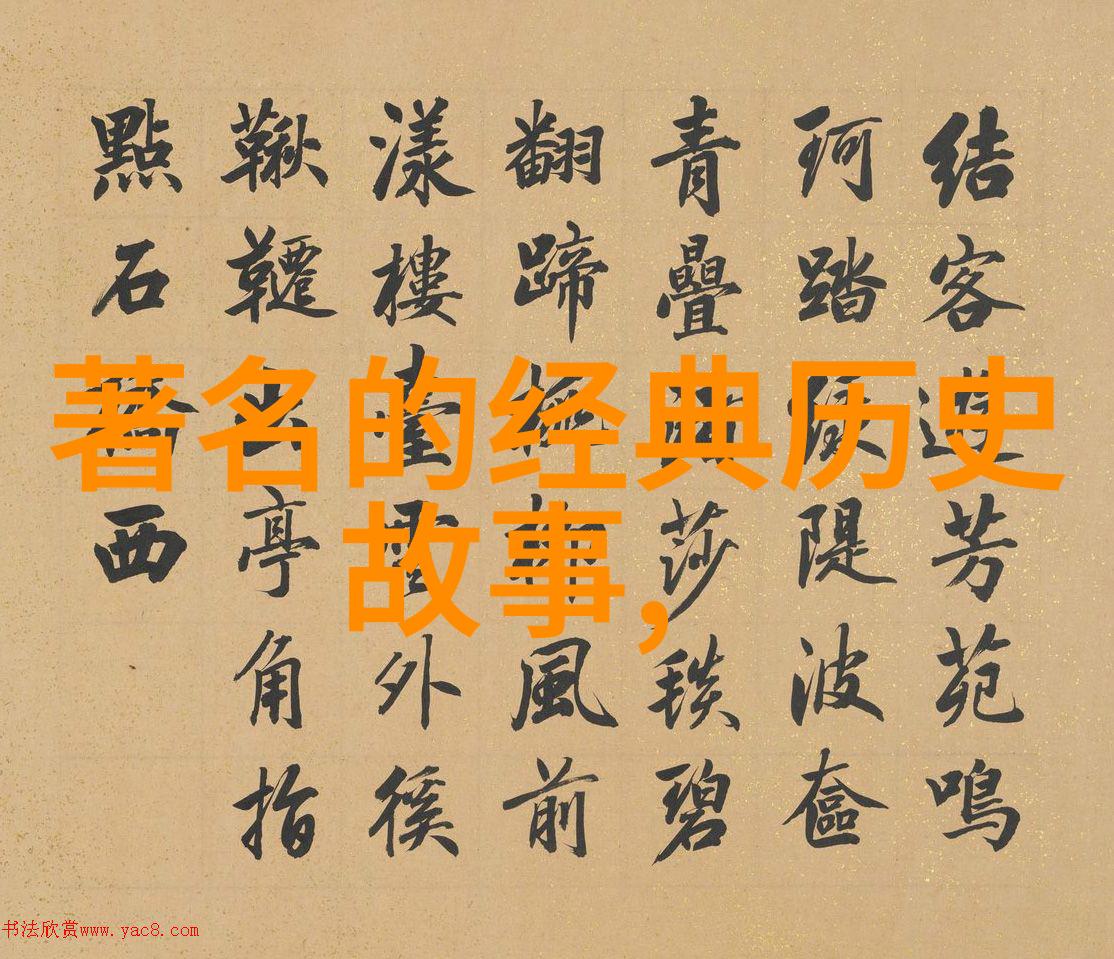 著名的经典历史
故事,
结客遊芳苑鳴
珂踏隄波奩
青疊莎毯碧
翻蹄風前
漾樓臺雲外徯
鞦韆出亭角指
點石橋西
书法欣赏www.yac8.com